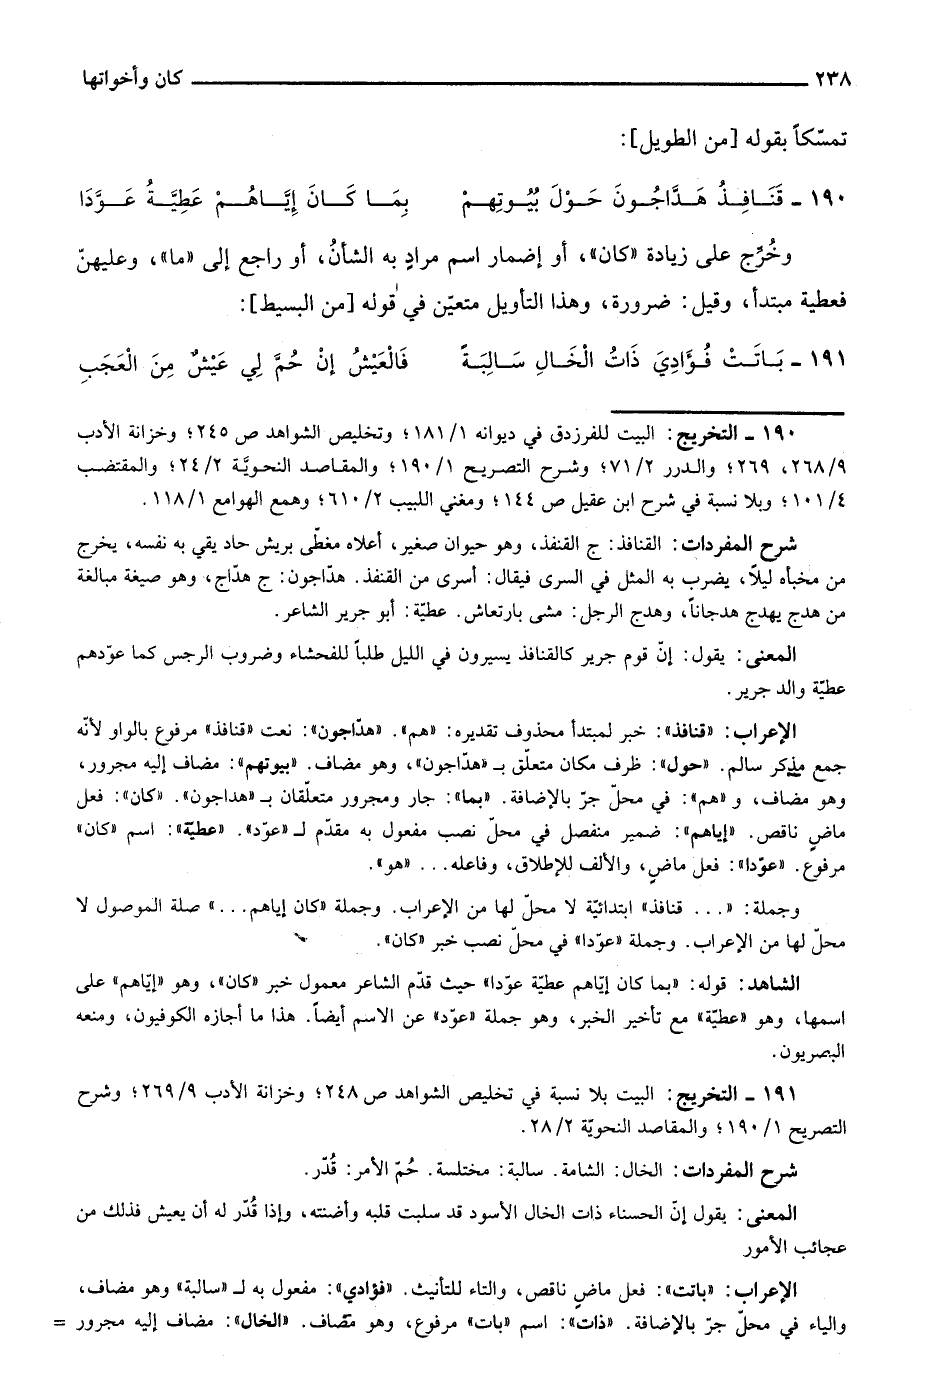 ٢٣٨ كان وأخواتها
تمسّكاً بقوله [من الطويل]:
١٩٠ ـ قَنَافِذُ هَدَّاجُونَ حَوْلَ بُيُوتِهِمْ بِمَا كَانَ إِيَّاهُمْ عَطِيَّةُ عَوَّدَا
وخُرِّج على زيادة «كان»، أو إضمار اسم مرادٍ به الشأنُ، أو راجع إلى «ما»، وعليهنّ
فعطية مبتدأ، وقيل: ضرورة، وهذا التأويل متعيّن في قوله [من البسيط]:
١٩١ ـ بَاتَتْ فُؤَادِيَ ذَاتُ الْخَالِ سَالِبَةً فَالْعَيْشُ إنْ حُمَّ لِي عَيْشٌ مِنَ الْعَجَبِ
١٩٠ ـ التخريج: البيت للفرزدق في ديوانه ١/ ١٨١؛ وتخليص الشواهد ص ٢٤٥؛ وخزانة الأدب
٩/ ٢٦٨، ٢٦٩؛ والدرر ٢/ ٧١؛ وشرح التصريح ١/ ١٩٠؛ والمقاصد النحويّة ٢/ ٢٤؛ والمقتضب
٤/ ١٠١؛ وبلا نسبة في شرح ابن عقيل ص ١٤٤؛ ومغني اللبيب ٢/ ٦١٠؛ وهمع الهوامع ١/ ١١٨.
شرح المفردات: القنافذ: ج القنفذ، وهو حيوان صغير، أعلاه مغطّى بريش حاد يقي به نفسه، يخرج
من مخبأه ليلاً، يضرب به المثل في السرى فيقال: أسرى من القنفذ. هدّاجون: ج هدّاج، وهو صيغة مبالغة
من هدج يهدج هدجاناً، وهدج الرجل: مشى بارتعاش. عطيّة: أبو جرير الشاعر.
المعنى: يقول: إنّ قوم جرير كالقنافذ يسيرون في الليل طلباً للفحشاء وضروب الرجس كما عوّدهم
عطيّة والد جرير.
الإعراب: «قنافذ»: خبر لمبتدأ محذوف تقديره: «هم». «هدّاجون»: نعت «قنافذ» مرفوع بالواو لأنّه
جمع مذكر سالم. «حول»: ظرف مكان متعلّق بـ «هدّاجون»، وهو مضاف. «بيوتهم»: مضاف إليه مجرور،
وهو مضاف، و «هم»: في محلّ جرّ بالإضافة. «بما»: جار ومجرور متعلّقان بـ «هداجون». «كان»: فعل
ماضٍ ناقص. «إياهم»: ضمير منفصل في محلّ نصب مفعول به مقدّم لـ «عوّد». «عطيّة»: اسم «كان»
مرفوع. «عوّدا»: فعل ماضٍ، والألف للإطلاق، وفاعله... «هو».
وجملة: «... قنافذ» ابتدائيّة لا محلّ لها من الإعراب. وجملة «كان إياهم...» صلة الموصول لا
محلّ لها من الإعراب. وجملة «عوّدا» في محلّ نصب خبر «كان».
الشاهد: قوله: «بما كان إيّاهم عطيّة عوّدا» حيث قدّم الشاعر معمول خبر «كان»، وهو «إيّاهم» على
اسمها، وهو «عطيّة» مع تأخير الخبر، وهو جملة «عوّد» عن الاسم أيضاً. هذا ما أجازه الكوفيون، ومنعه
البصريون.
١٩١ ـ التخريج: البيت بلا نسبة في تخليص الشواهد ص ٢٤٨؛ وخزانة الأدب ٩/ ٢٦٩؛ وشرح
التصريح ١/ ١٩٠؛ والمقاصد النحويّة ٢/ ٢٨.
شرح المفردات: الخال: الشامة. سالبة: مختلسة. حُمّ الأمر: قُدّر.
المعنى: يقول إنّ الحسناء ذات الخال الأسود قد سلبت قلبه وأضنته، وإذا قُدّر له أن يعيش فذلك من
عجائب الأمور
الإعراب: «باتت»: فعل ماضٍ ناقص، والتاء للتأنيث. «فؤادي»: مفعول به لـ «سالبة» وهو مضاف،
والياء في محلّ جرّ بالإضافة. «ذات»: اسم «بات» مرفوع، وهو مضاف. «الخال»: مضاف إليه مجرور =